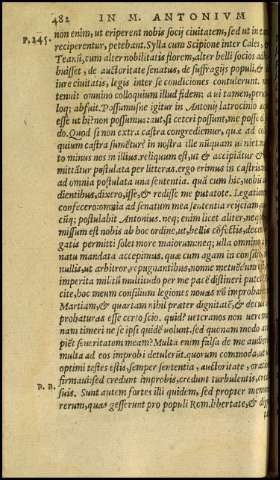 482 IN M. ANTONIVM
P.245. non enim, ut eriperent nobis socij ciuitatem, sed ut in
reciperentur, petebant. Sylla cum Scipione inter Cales,
Teanũ, cum alter nobilitatis florem, alter belli socios ad
buisset, de auctoritate senatus, de suffragijs populi, &
iure ciuitatis, leges inter se conditiones contulerunt.
tenuit omnino colloquium illud fidem: a ui tamen, per
loq; abfuit. Possumusne igitur in Antonij latrocinio
esse ut hi? non possumus: aut, si ceteri possunt, me posse
do. Quod si non extra castra congrediemur, quæ ad co
quium castra sumẽtur? in nostra ille nũquam
to minus nos in illius. reliquum est, ut & accipiãtur &
mittãtur postulata per litteras. ergo erimus in castris
ad omnia postulata una sententia. quã cum hic, uobis
dientibus, dixero, isse, & redisse me putatote. legation
confecero: omnia ad senatum mea sententia reijciam,
cũq; postulabit Antonius. neq; enim licet aliter, neq;
missum est nobis ab hoc ordine, ut, bellis cõfectis, dece
gatis permitti solet more maiorum: neq; ulla omnino
natu mandata accepimus. quæ cum agam in consili
nullis, ut arbitror, repugnantibus, nonne metuẽdum
imperita militũ multitudo per me pacẽ distineri putet
cite, hoc meum consilium legiones nouas nõ improba
Martiam, & quartam nihil præter dignitatẽ, & decus
probaturas esse certo scio. quid? ueteranos non uere
nam timeri ne se ipsi quidẽ uolunt. sed quonam modo
piẽt seueritatem meam? Multa enim falsa de me audie
multa ad eos improbi detulerũt. quorum commoda, ut
optimi testes estis, semper sententia, auctoritate, ora
firmaui: sed credunt improbis, credunt turbulentis, cre
P. B. suis. Sunt autem fortes illi quidem, sed propter memo
rerum, quas gesserunt pro populi Rom. libertate, &